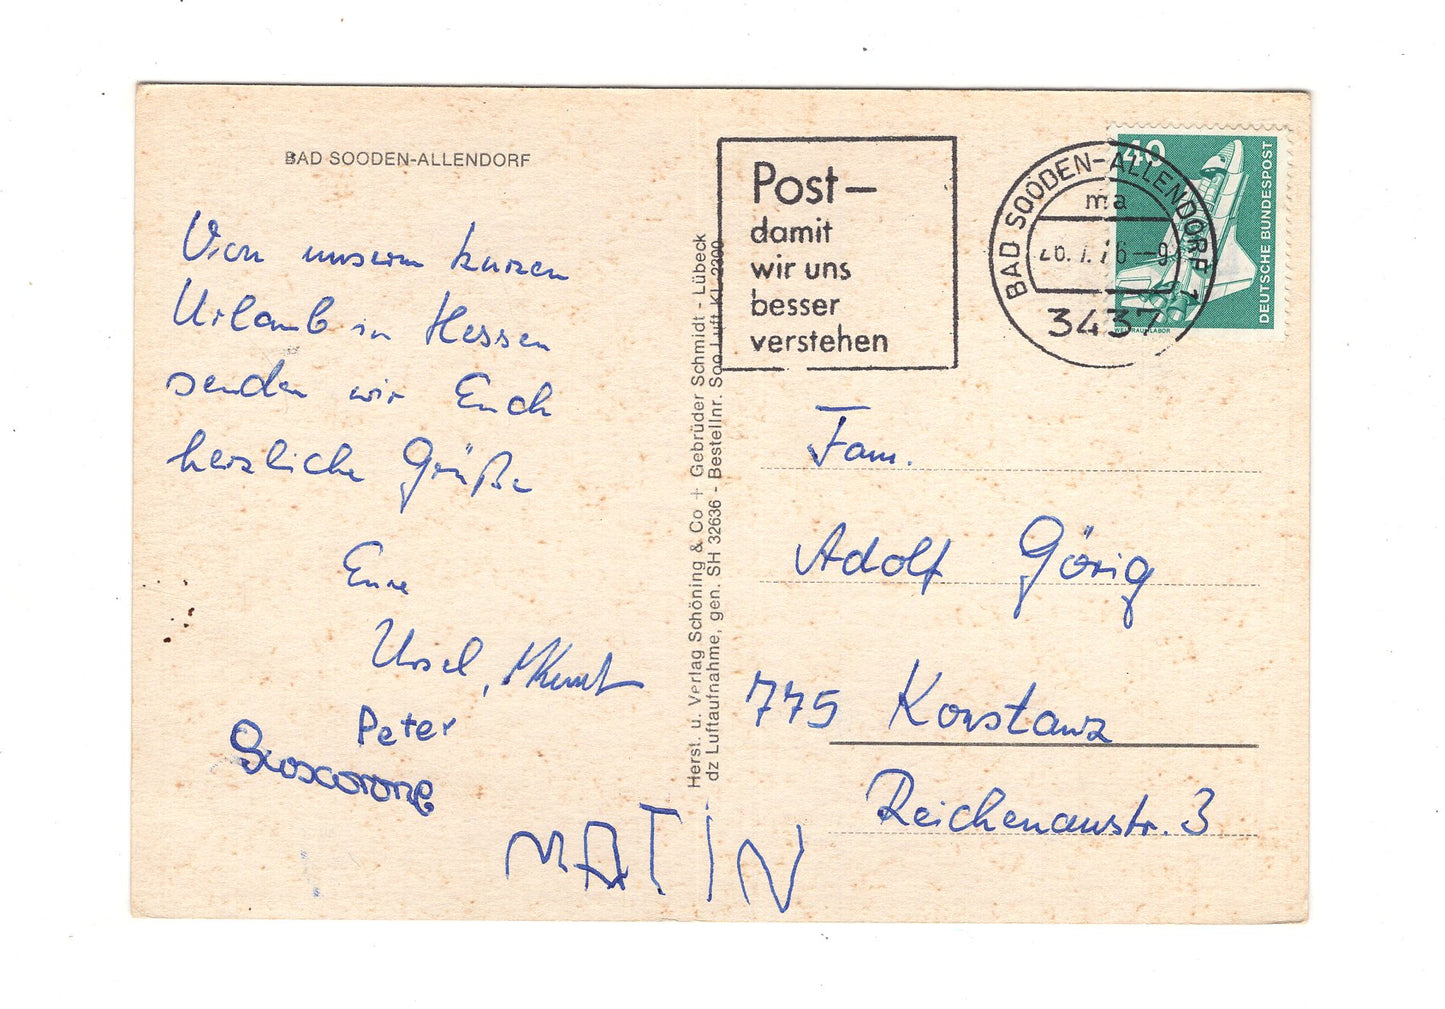 BAD SOODEN-ALLENDORF
Von unserem kurzen
Urlaub in Hessen
senden wir Euch
herzliche Grüße
Eure
Ursel,
Peter
MATIN
Herst. u. Verlag Schöning & Co + Gebrüder Schmidt - Lübeck
dz Luftaufnahme, gen. SH 32636 - Bestellnr. Soo Luft KL 2300
Post –
damit
wir uns
besser
verstehen
BAD SOODEN-ALLENDORF 1
ma
26. 7. 76 – 9
3437
40
DEUTSCHE BUNDESPOST
WELTRAUMLABOR
Fam.
Adolf Görig
775 Konstanz
Reichenaustr. 3